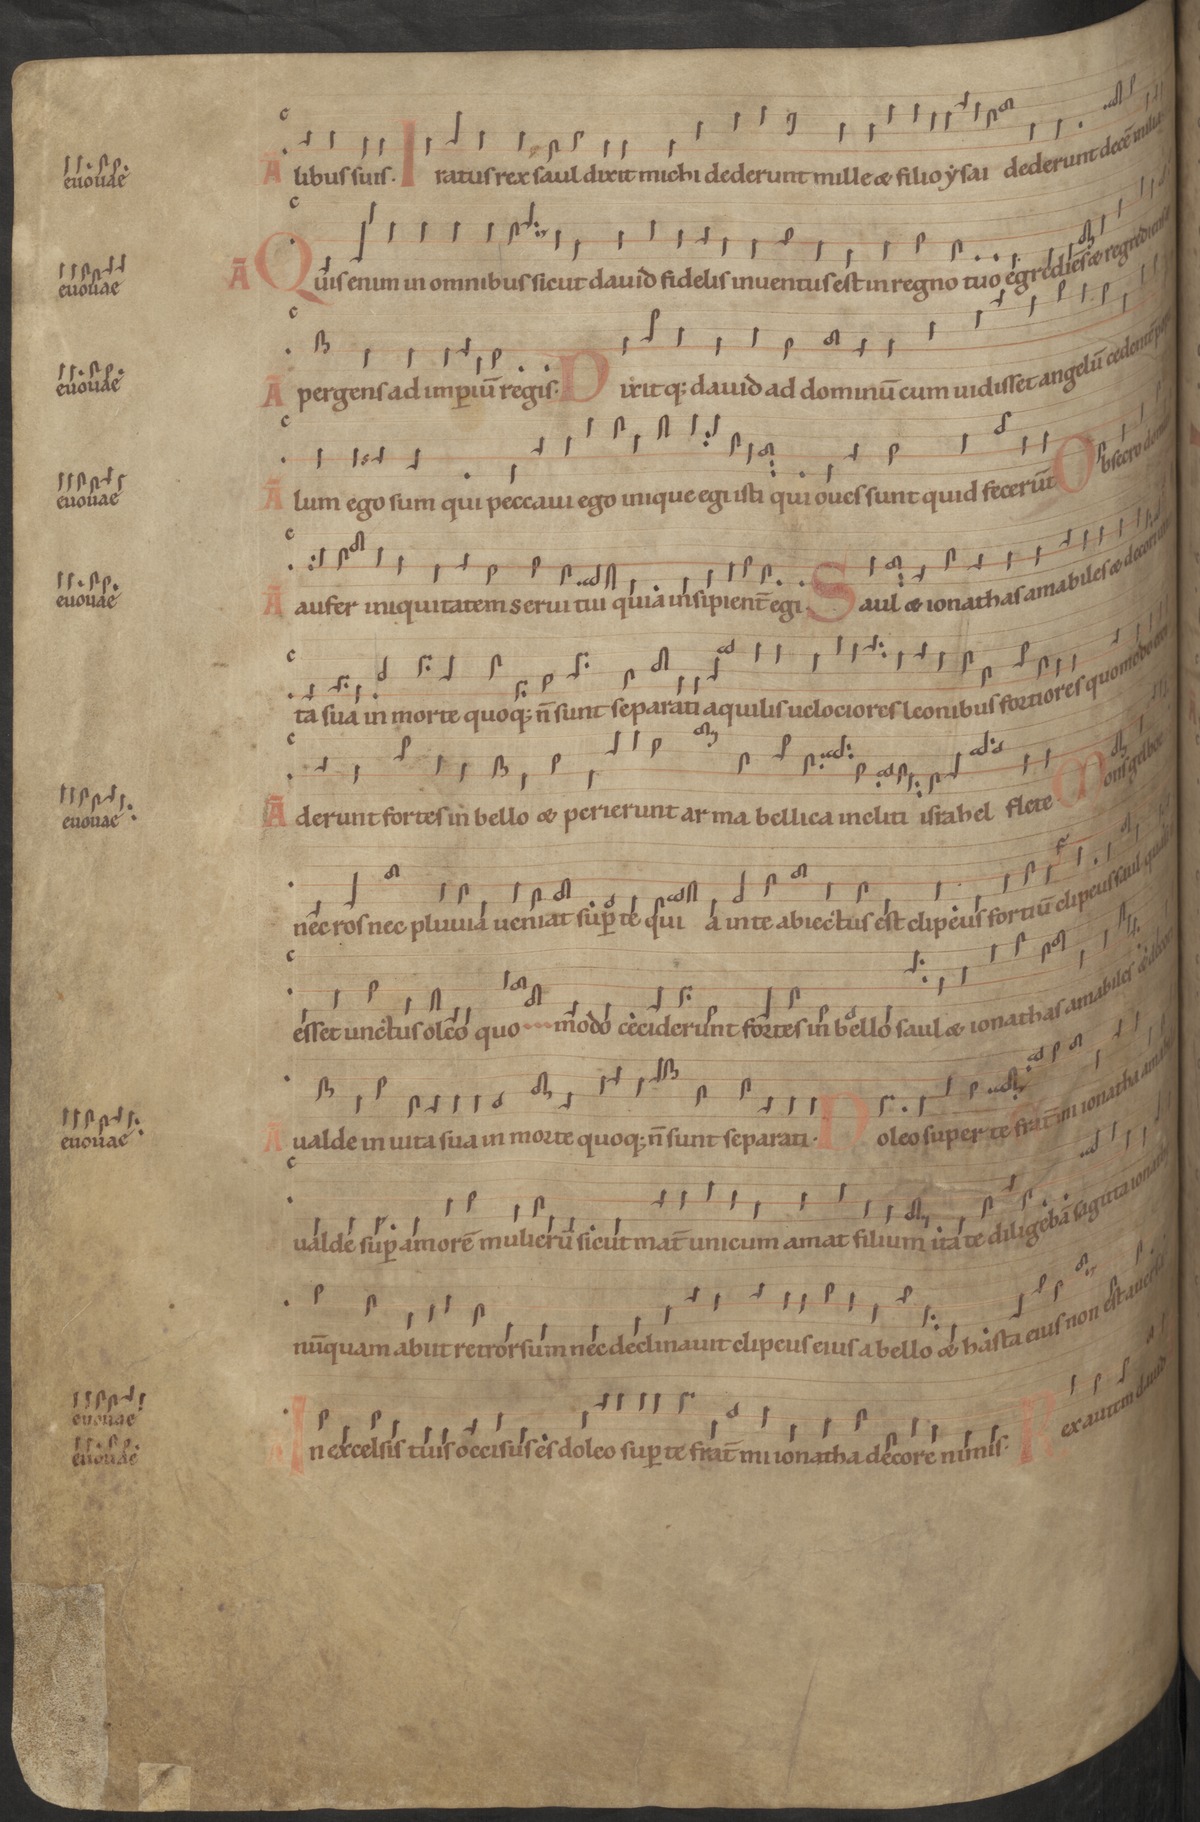 euouae A libus suis. Iratus rex saul dixit michi dederunt mille & filio ẏsai dederunt decē milia
euouae A Quis enim in omnibus sicut dauid fidelis inuentus est in regno tuo egrediens & regrediens
euouae A pergens ad imperiū regis. Dixitq; dauid ad dominū cum uidisset angelū cedentē
euouae A lum ego sum qui peccaui ego inique egi isti qui oues sunt quid fecerūt Obsecro
euouae A aufer iniquitatem serui tui quia insipient̄ egi. Saul & ionathas amabiles & decori
ta sua in morte quoq; n̄ sunt separati aquilis uelociores leonibus fortiores quomodo
euouae A derunt fortes in bello & perierunt arma bellica incliti israhel flete Mons gelboe
nec ros nec pluuia ueniat sup te quia in te abiectus est clipeus fortiū clipeus saul quasi
esset unctus oleo quomodo ceciderunt fortes in bello saul & ionathas amabiles & decori
euouae A ualde in uita sua in morte quoq; n̄ sunt separati. Doleo super te frat̄ mi ionatha
ualde sup amorē mulierū sicut mat̄ unicum amat filium ita te diligebā sagitta ionathe
nūquam abiit retrorsum nec declinauit clipeus eius a bello & hasta eius non est auersa
euouae In excelsis tuis occisus es doleo sup te frat̄ mi ionatha decore nimis. Rex autem dauid
euouae